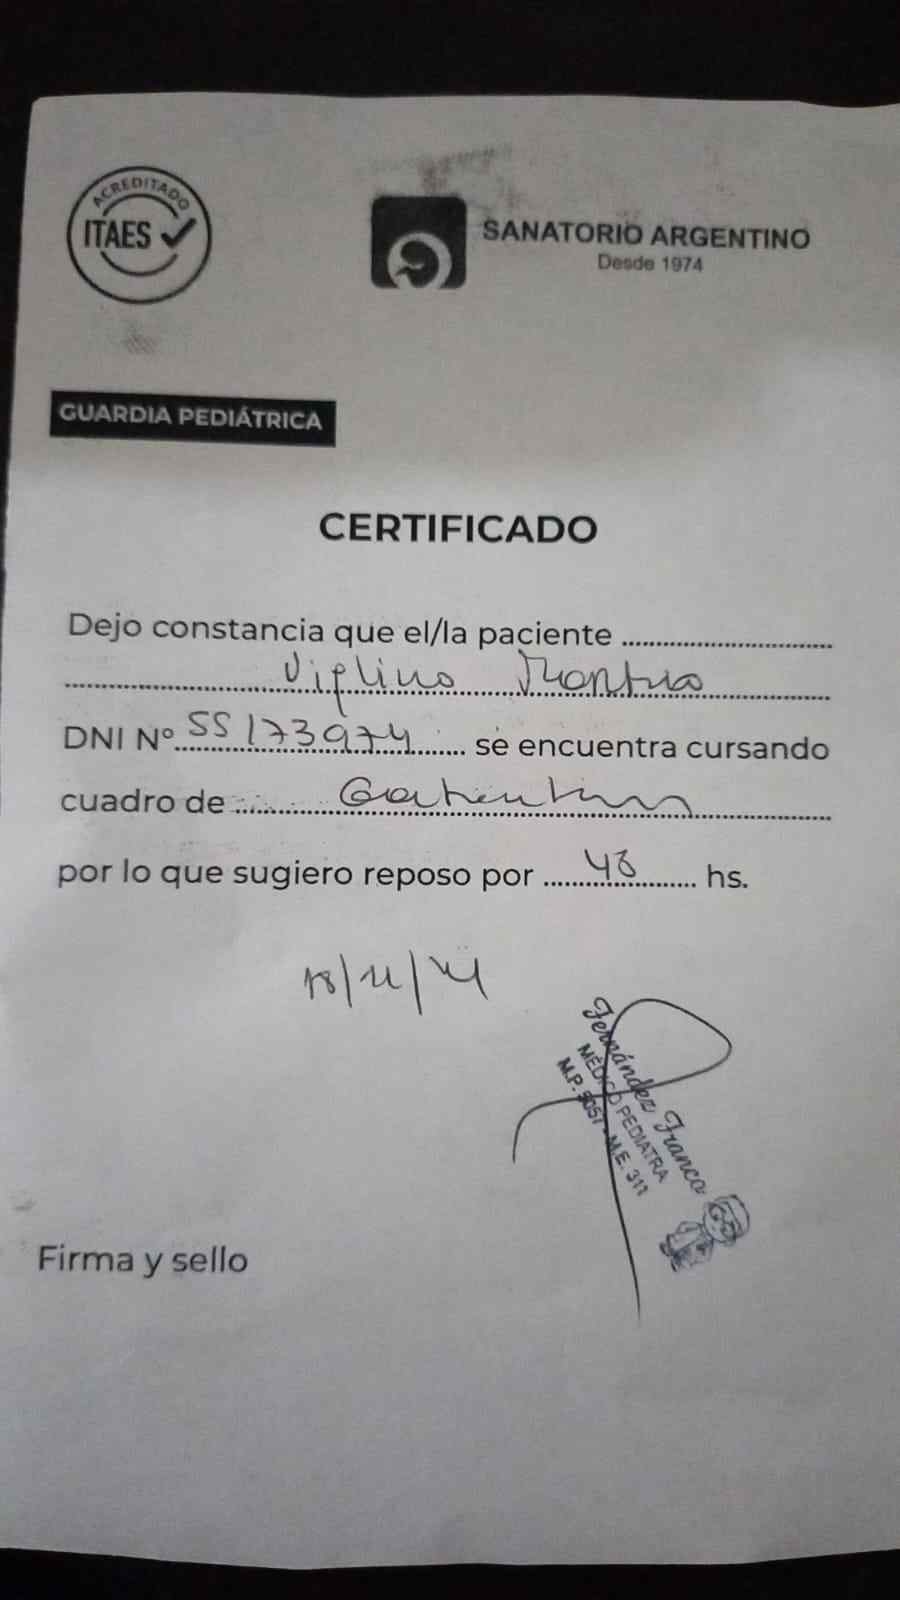 ACREDITADO
ITAES
SANATORIO ARGENTINO
Desde 1974
GUARDIA PEDIÁTRICA
CERTIFICADO
Dejo constancia que el/la paciente
Viglino
DNI Nº 55173974 se encuentra cursando
cuadro de
por lo que sugiero reposo por 48 hs.
Fernández Franco
MÉDICO PEDIATRA
M.P. 5057 - M.E. 311
Firma y sello